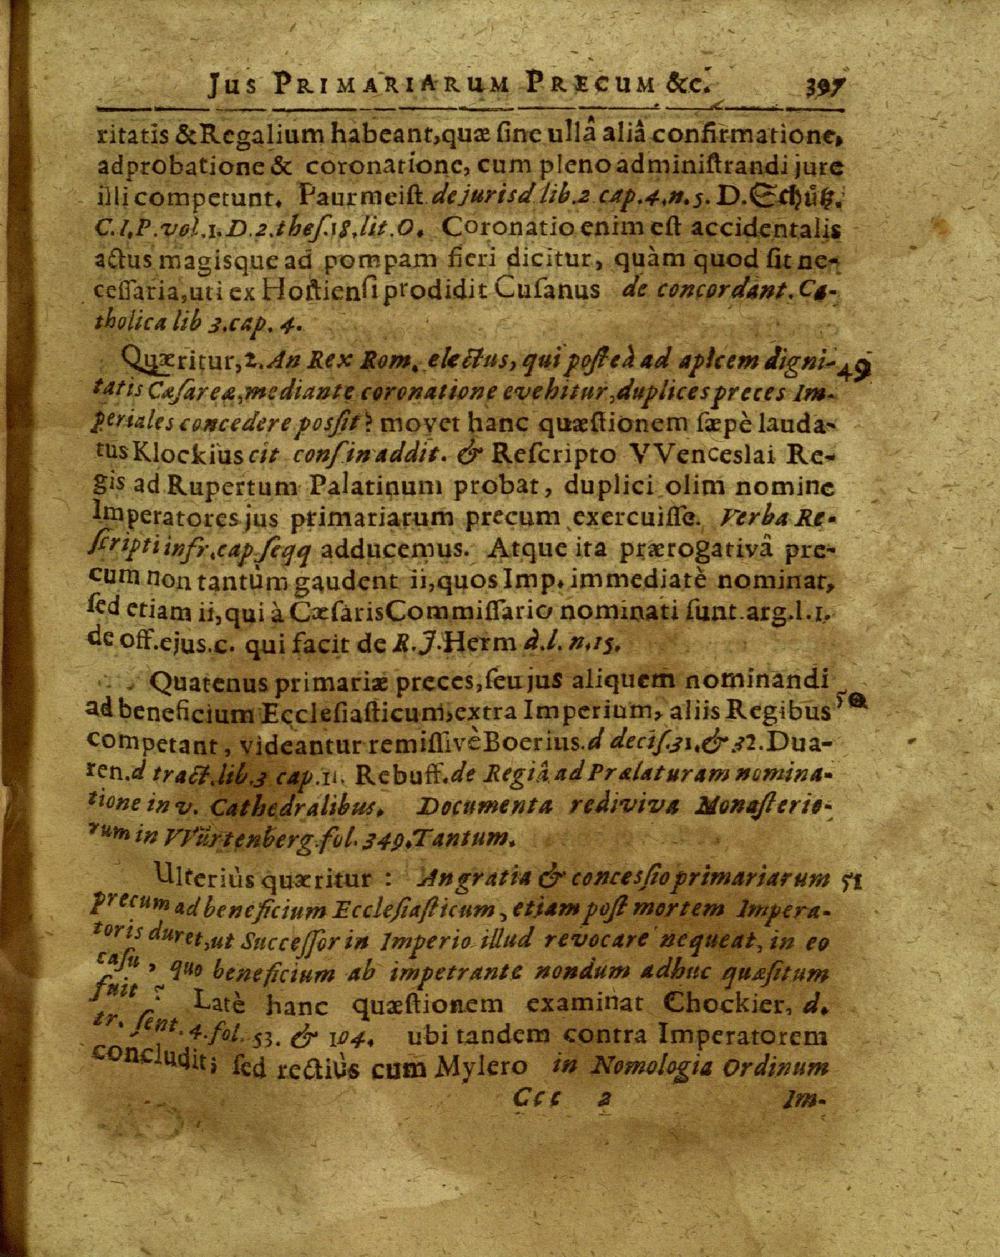 Jus Primariarum Precum &c. 397
ritatis & Regalium habeant, quæ ſine ullâ aliâ confirmatione,
adprobatione & coronatione, cum pleno adminiſtrandi jure
illi competunt. Paurmeiſt de jurisd lib.2 cap.4.n.5. D. Schütz.
C.I.P.vol.1.D.2.theſ.18.lit.O. Coronatio enim eſt accidentalis
actus magisque ad pompam fieri dicitur, quàm quod ſit ne-
ceſſaria, uti ex Hoſtienſi prodidit Cuſanus de concordant. Ca-
tholica lib 3.cap. 4.
Quæritur, 2. An Rex Rom. electus, qui poſteà ad apicem digni- 49
tatis Cæſareæ, mediante coronatione evehitur, duplices preces Im-
periales concedere posſit? movet hanc quæſtionem ſæpè lauda-
tus Klockius cit conſ in addit. & Reſcripto VVenceslai Re-
gis ad Rupertum Palatinum probat, duplici olim nomine
Imperatores jus primariarum precum exercuiſſe. Verba Re-
ſcripti infr. cap. ſeqq adducemus. Atque ita prærogativâ pre-
cum non tantùm gaudent ii, quos Imp. immediatè nominat,
ſed etiam ii, qui à Cæſaris Commiſſario nominati ſunt. arg.l.1.
de off. ejus. c. qui facit de R.J. Herm d.l. n.15.
Quatenus primariæ preces, ſeu jus aliquem nominandi
ad beneficium Eccleſiaſticum, extra Imperium, aliis Regibus 50
competant, videantur remiſſivè Boerius. d deciſ.31. & 32. Dua-
ren. d tract. lib.3 cap.11. Rebuff. de Regiâ ad Prælaturam nomina-
tione in v. Cathedralibus. Documenta rediviva Monaſterio-
rum in VVürtenberg. fol. 349. Tantum.
Ulteriùs quæritur : An gratia & concesſio primariarum 51
precum ad beneficium Eccleſiaſticum, etiam poſt mortem Impera-
toris duret, ut Succeſſor in Imperio illud revocare nequeat, in eo
caſu, quo beneficium ab impetrante nondum adhuc quæſitum
fuit? Latè hanc quæſtionem examinat Chockier, d.
tr. ſent. 4. fol. 53. & 104. ubi tandem contra Imperatorem
concludit; ſed rectiùs cum Mylero in Nomologia Ordinum
Ccc 2 Im-